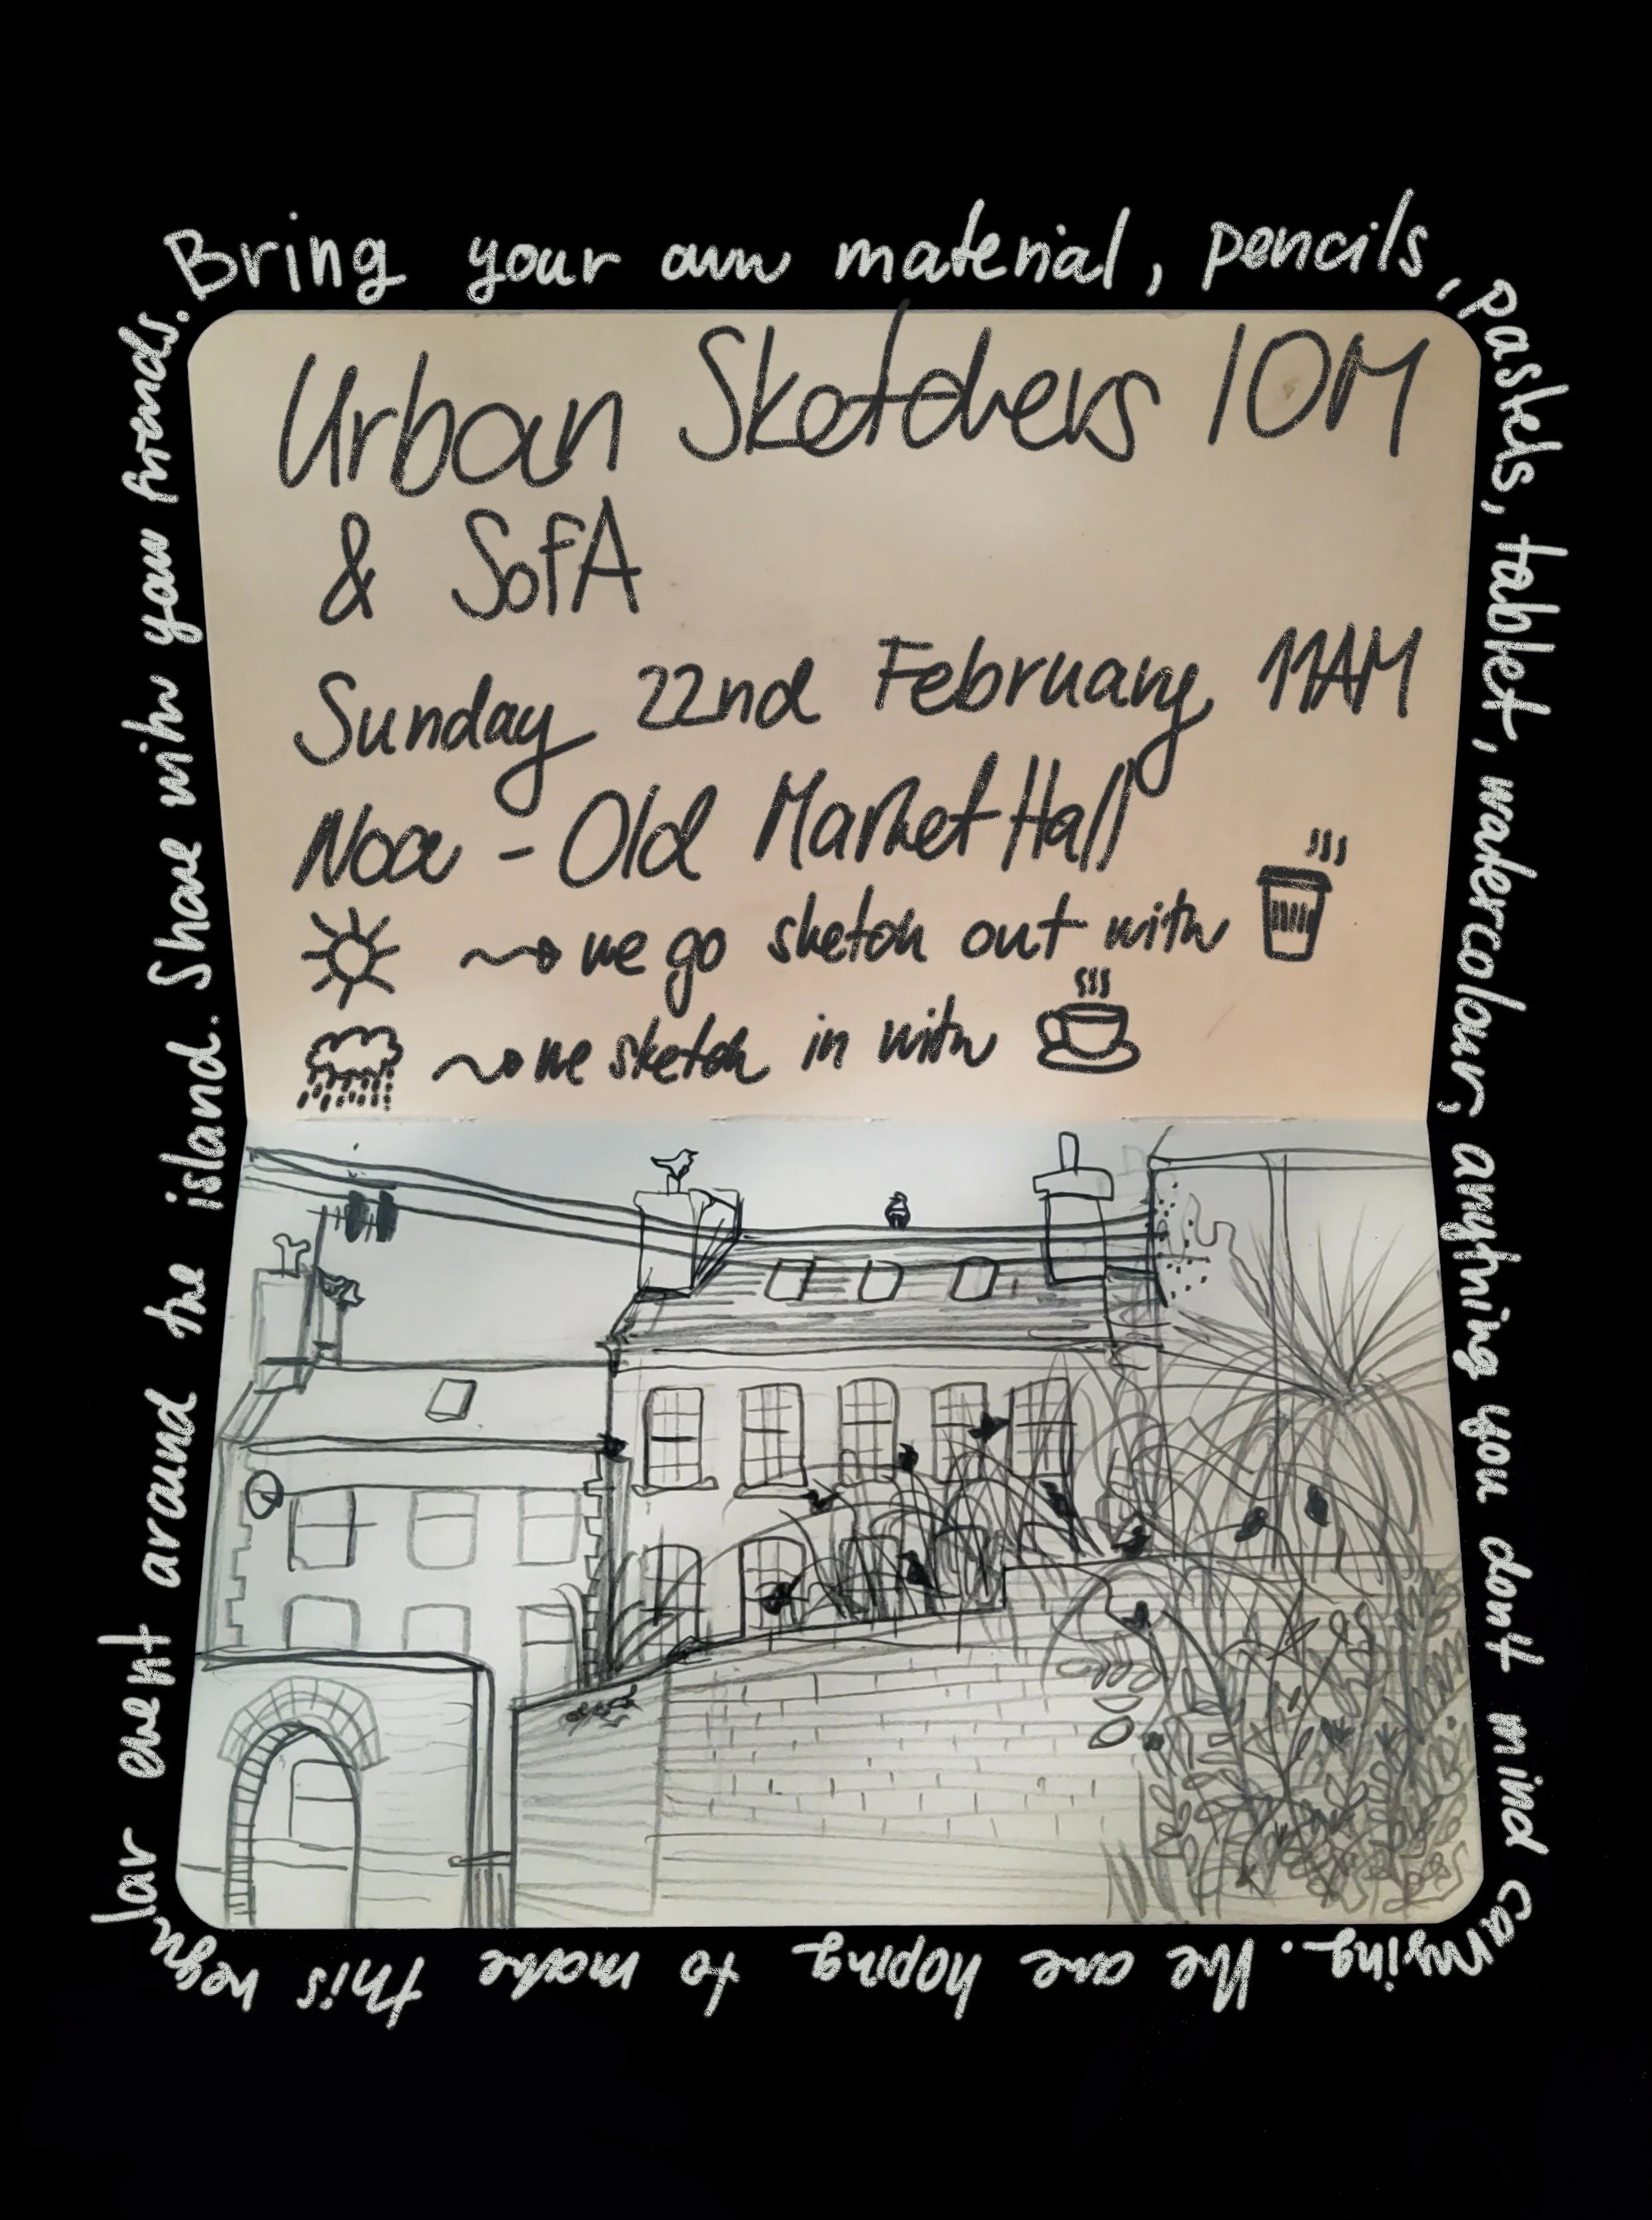 Bring your own material, pencils,
pastels, tablet, watercolour, anything you don't mind
carrying. We are hoping to make this regu
lar event around the island. Share with your friends.
Urban Sketchers IOM
& SofA
Sunday 22nd February 11AM
Noa - Old Market Hall
we go sketch out with
we sketch in with